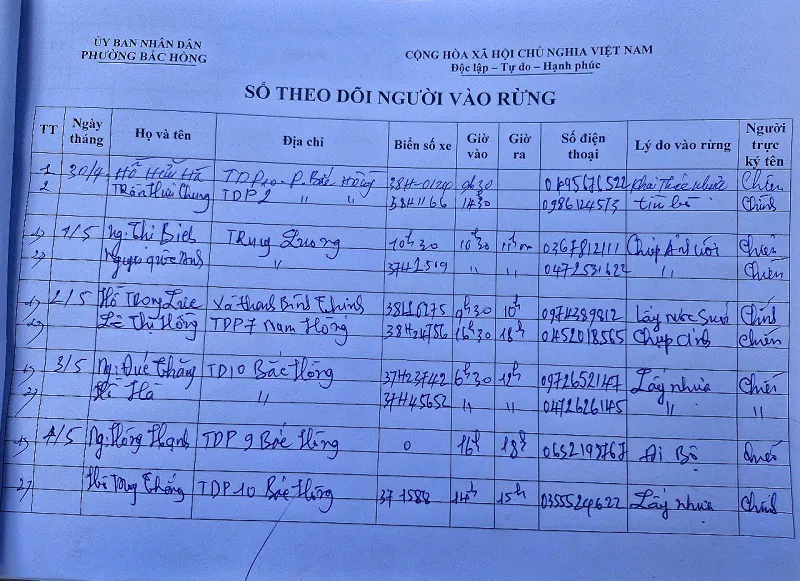 ỦY BAN NHÂN DÂN
PHƯỜNG BẮC HỒNG
CỘNG HÒA XÃ HỘI CHỦ NGHĨA VIỆT NAM
Độc lập – Tự do – Hạnh phúc
SỔ THEO DÕI NGƯỜI VÀO RỪNG
TT Ngày tháng Họ và tên Địa chỉ Biển số xe Giờ vào Giờ ra Số điện thoại Lý do vào rừng Người trực ký tên
1 30/4 Hồ Hữu Hà TDP10 - P. Bắc Hồng 9h30 Chiến
2 Trần Hữu Chung TDP 2 " " 38H1166 14h30
1) 1/5 Ng. Thị Biết Trung Lương 10h30 10h30 0367812111 Chụp Ảnh cưới Chiến
2) Nguyễn Quốc Anh " 37H2519 " " 0472531622 " Chiến
1) 2/5 Hồ Trọng 38H16275 9h30 10h 0974389812 Lấy nước Suối
Lê Thị Hồng TDP 7 Nam Hồng 38H24756 16h30 18h 0452018565 Chụp ảnh Chiến
1) 3/5 Ng. Đức Thắng TD10 Bắc Hồng 37H23742 6h30 12h 0972652147 Lấy nhựa Chiến
2) Hà " 37H45652 " " 0472626145 " "
1) 4/5 Ng. Hồng Hạnh TDP 9 Bắc Hồng 0 16h 18h 0652193767 Đi Bộ
2) Thắng TDP 10 Bắc Hồng 37 1588 14h 15h 0355524622 Lấy nhựa